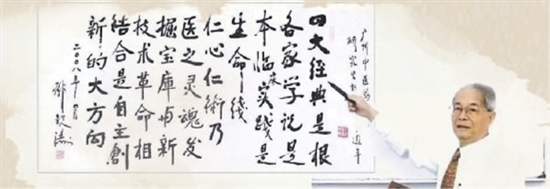 广州中医药
研究生
四大经典是根
各家学说是
本临床实践是
生命线
仁心仁术乃
医之灵魂发
掘宝库与新
技术革命相
结合是自主創
新的大方向
二〇〇八年
邓铁涛